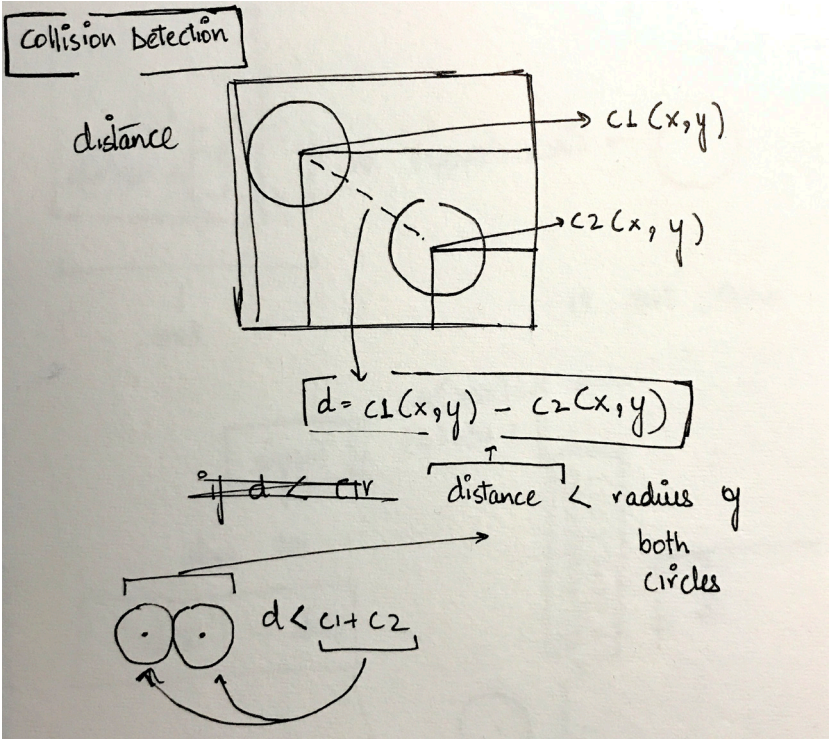 Collision Detection
distance
C1 (x, y)
C2 (x, y)
d = C1 (x, y) - C2 (x, y)
if d < C1r
distance < radius of
both
circles
d < C1 + C2